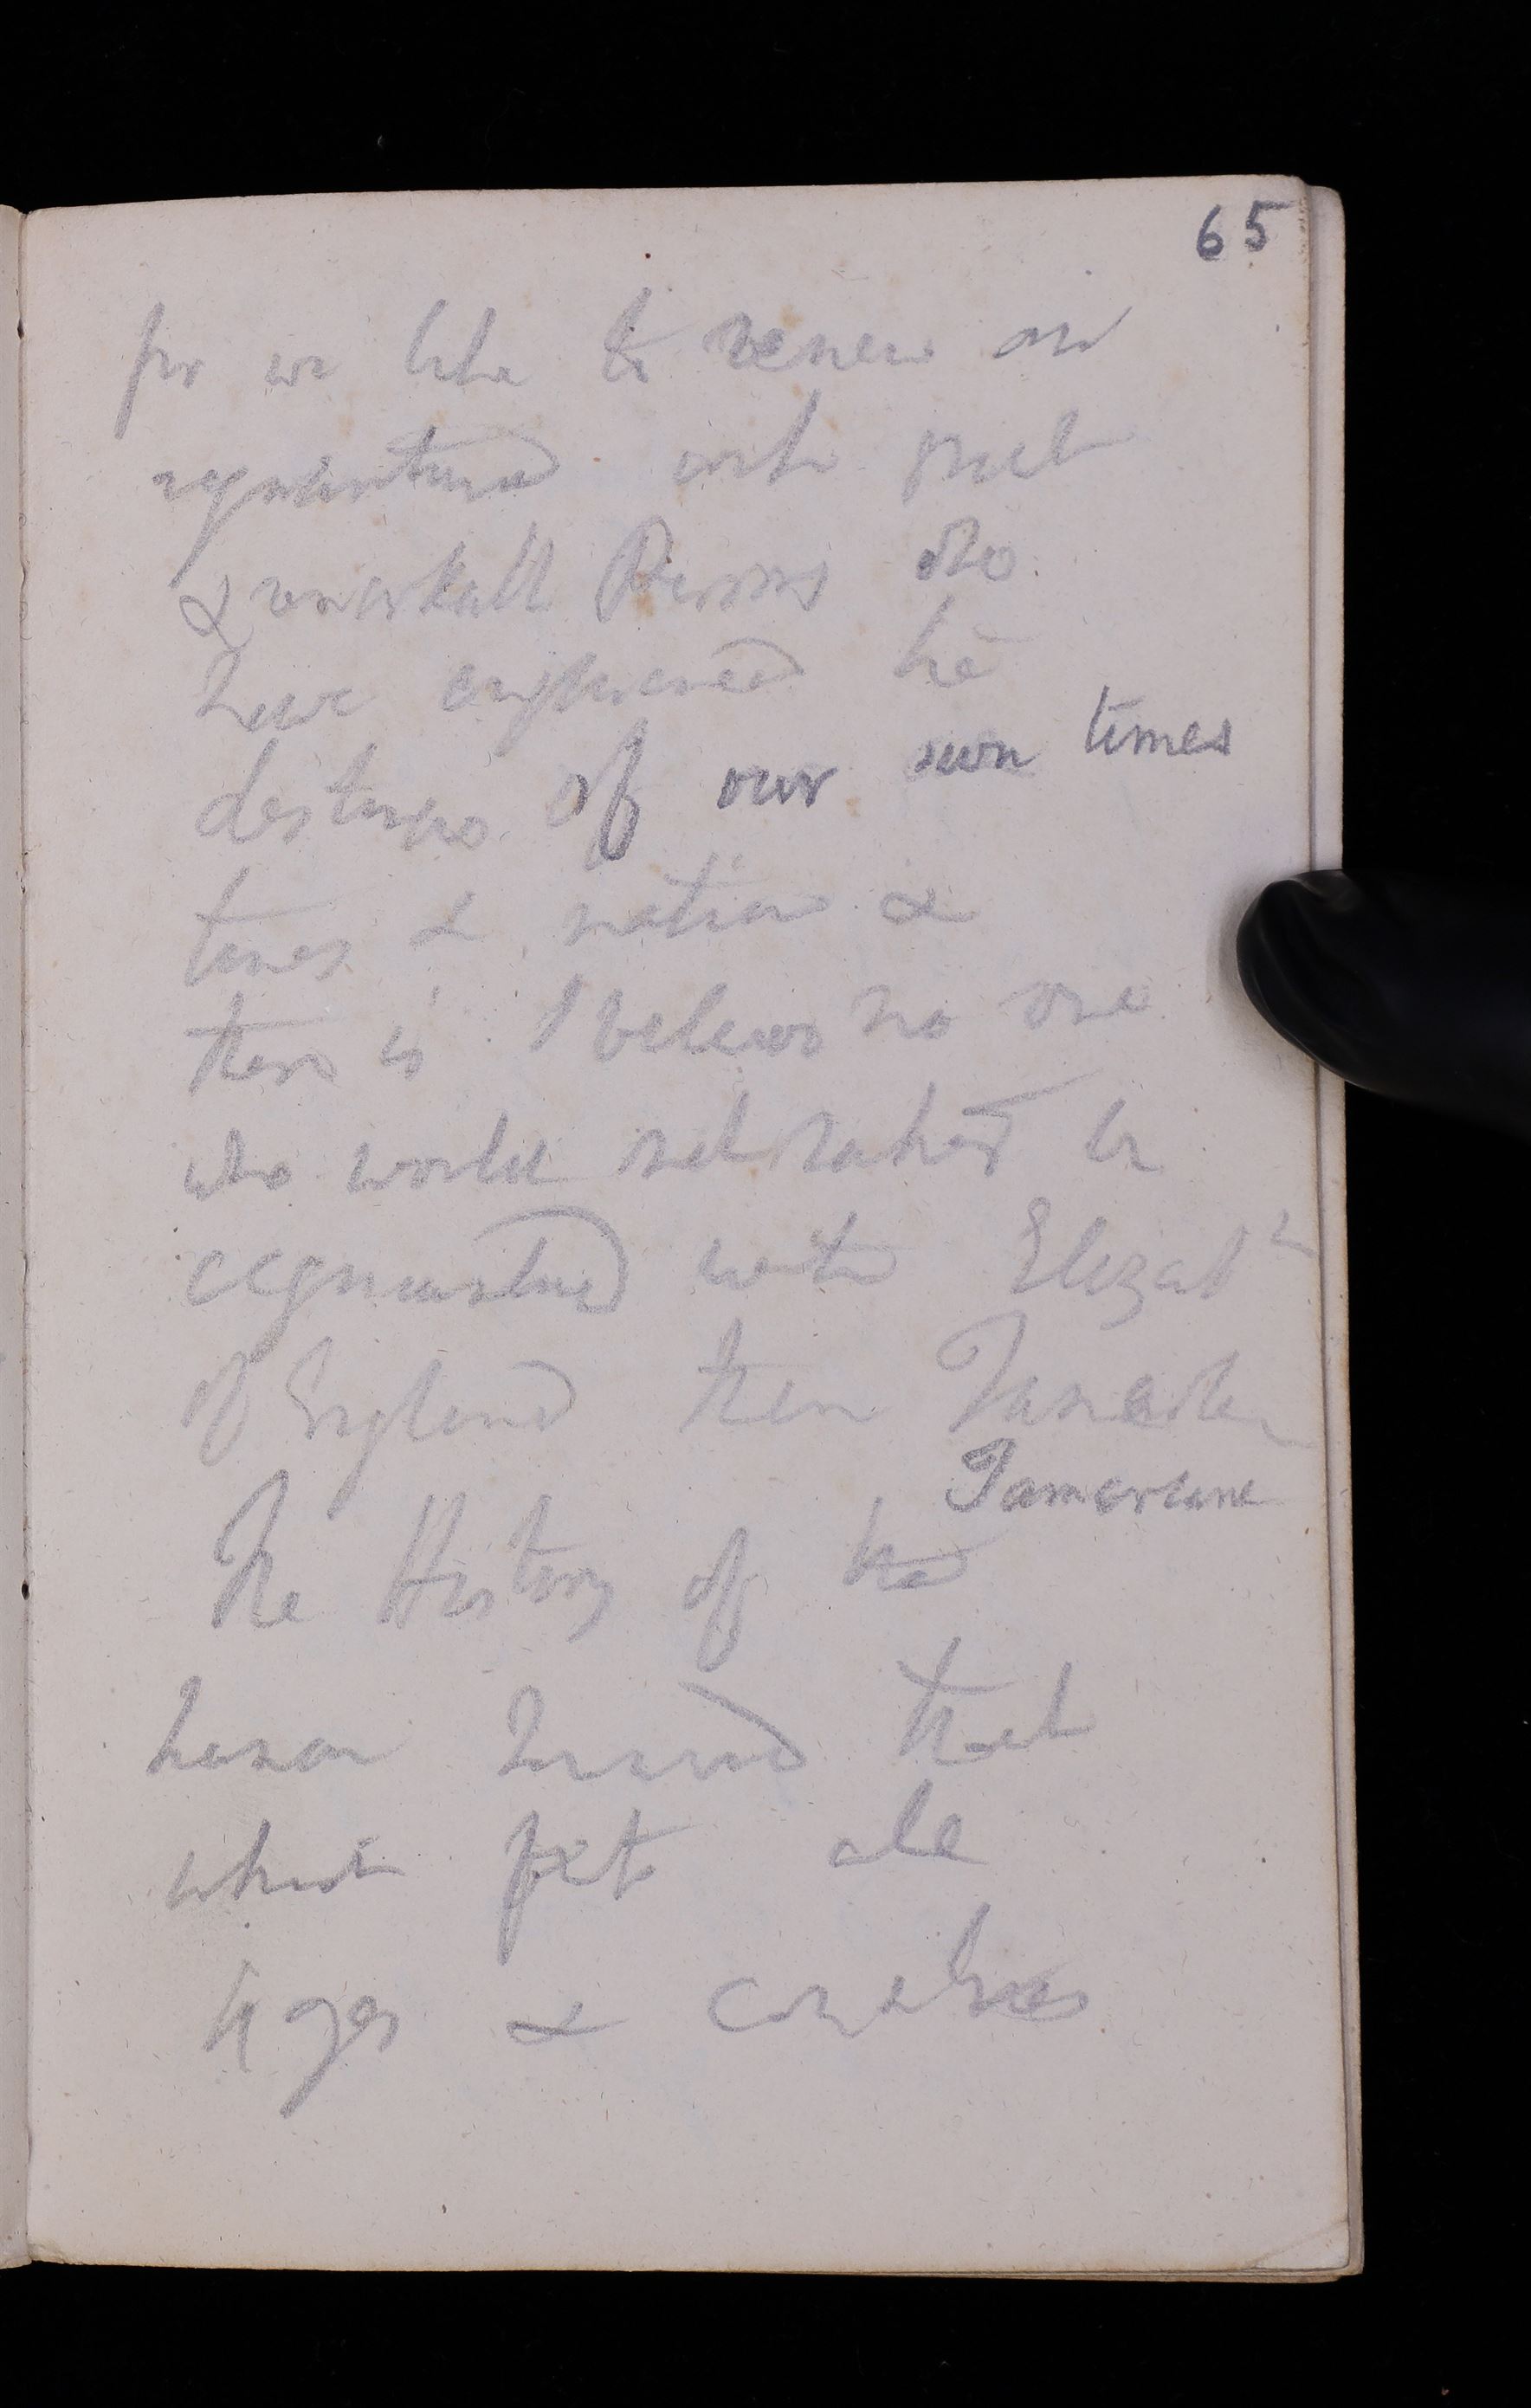 65
for we like to renew our
acquaintance with great
& remarkable Persons who
have influenced the
destinies of our own times
times & nation &
there is I believe no one
who would not rather be
acquainted with Elizabth
of England then
Tamerlane
The History of the
human that
which all
Ages & Countries